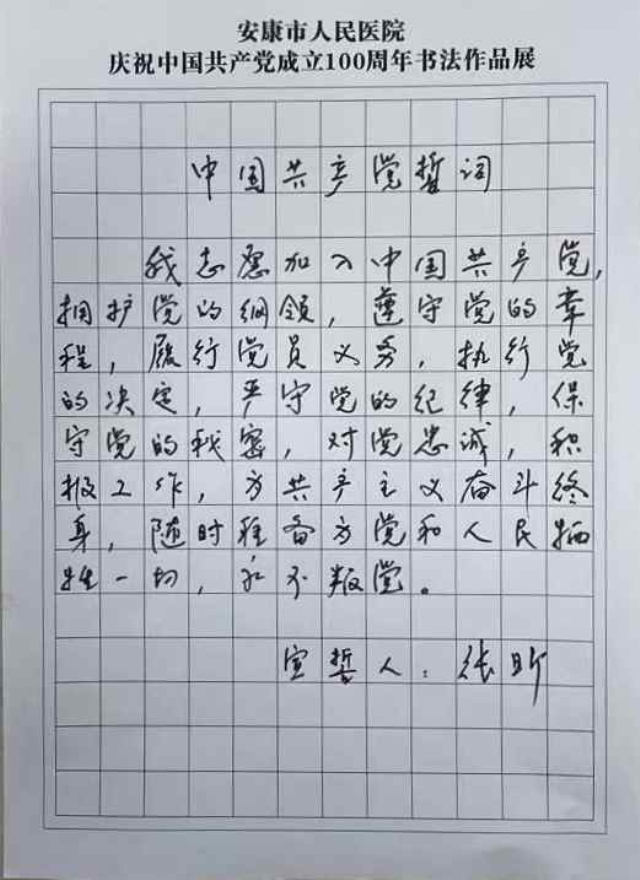 安康市人民医院
庆祝中国共产党成立100周年书法作品展
中国共产党誓词
我志愿加入中国共产党，
拥护党的纲领，遵守党的章
程，履行党员义务，执行党
的决定，严守党的纪律，保
守党的秘密，对党忠诚，积
极工作，为共产主义奋斗终
身，随时准备为党和人民牺
牲一切，永不叛党。
宣誓人：张昕